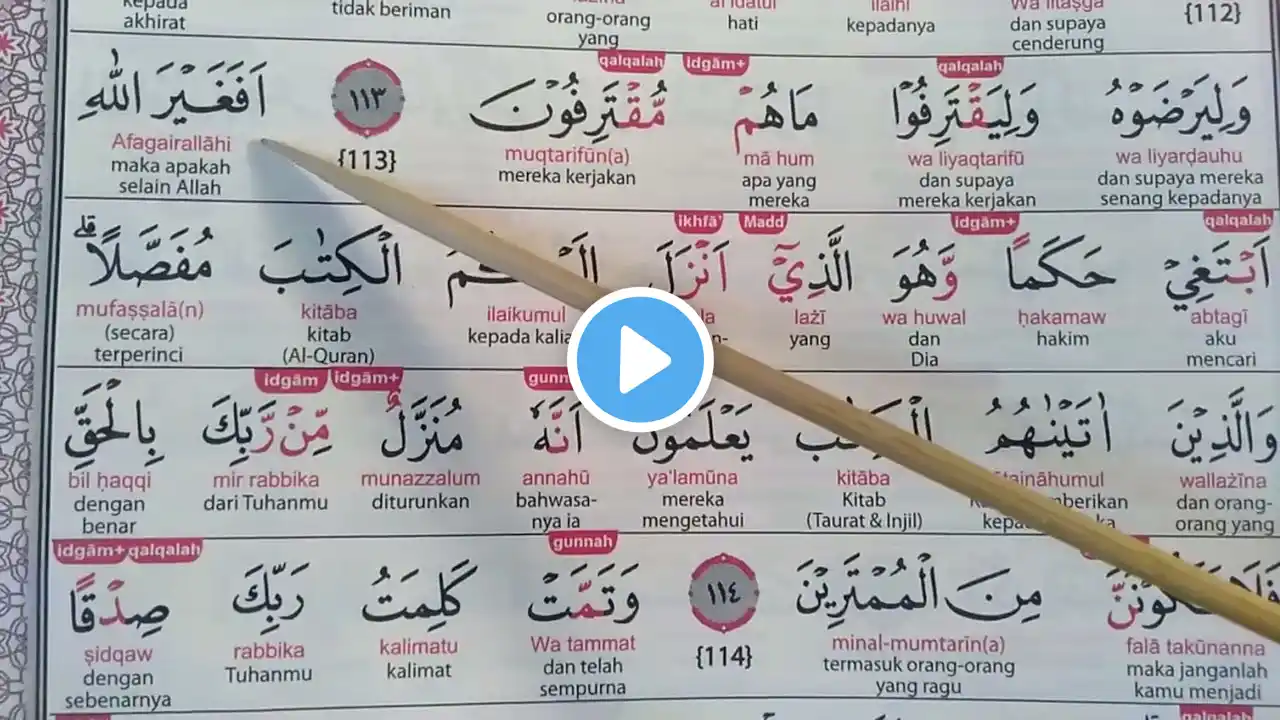 {112} dan supaya cenderung kepadanya hati orang-orang yang tidak beriman kepada akhirat
qalqalah idgām+ qalqalah
وَلِيَرْضَوْهُ وَلِيَقْتَرِفُوْا مَاهُمْ مُّقْتَرِفُوْنَ ١١٣ اَفَغَيْرَ اللّٰهِ
wa liyarḍauhu wa liyaqtarifū mā hum muqtarifūn(a) {113} Afagairallāhi
dan supaya mereka senang kepadanya dan supaya mereka kerjakan apa yang mereka mereka kerjakan maka apakah selain Allah
qalqalah idgām+ Madd ikhfā'
اَبْتَغِيْ حَكَمًا وَّهُوَ الَّذِيْٓ اَنْزَلَ الْكِتٰبَ مُفَصَّلًا ۗ
abtagī ḥakamaw wa huwal lażī ilaikumul kitāba mufaṣṣalā(n)
aku mencari hakim dan Dia yang kitab (Al-Quran) (secara) terperinci
idgām+ idgām
وَالَّذِيْنَ اٰتَيْنٰهُمُ يَعْلَمُوْنَ اَنَّهٗ مُنَزَّلٌ مِّنْ رَّبِّكَ بِالْحَقِّ
wallażīna kitāba ya'lamūna annahū munazzalum mir rabbika bil ḥaqqi
dan orang-orang yang Kitab (Taurat & Injil) mereka mengetahui bahwasa-nya ia diturunkan dari Tuhanmu dengan benar
gunnah qalqalah idgām+
مِنَ الْمُمْتَرِيْنَ ١١٤ وَتَمَّتْ كَلِمَتُ رَبِّكَ صِدْقًا
falā takūnanna minal-mumtarīn(a) {114} Wa tammat kalimatu rabbika ṣidqaw
maka janganlah kamu menjadi termasuk orang-orang yang ragu dan telah sempurna kalimat Tuhanmu dengan sebenarnya
qalqalah